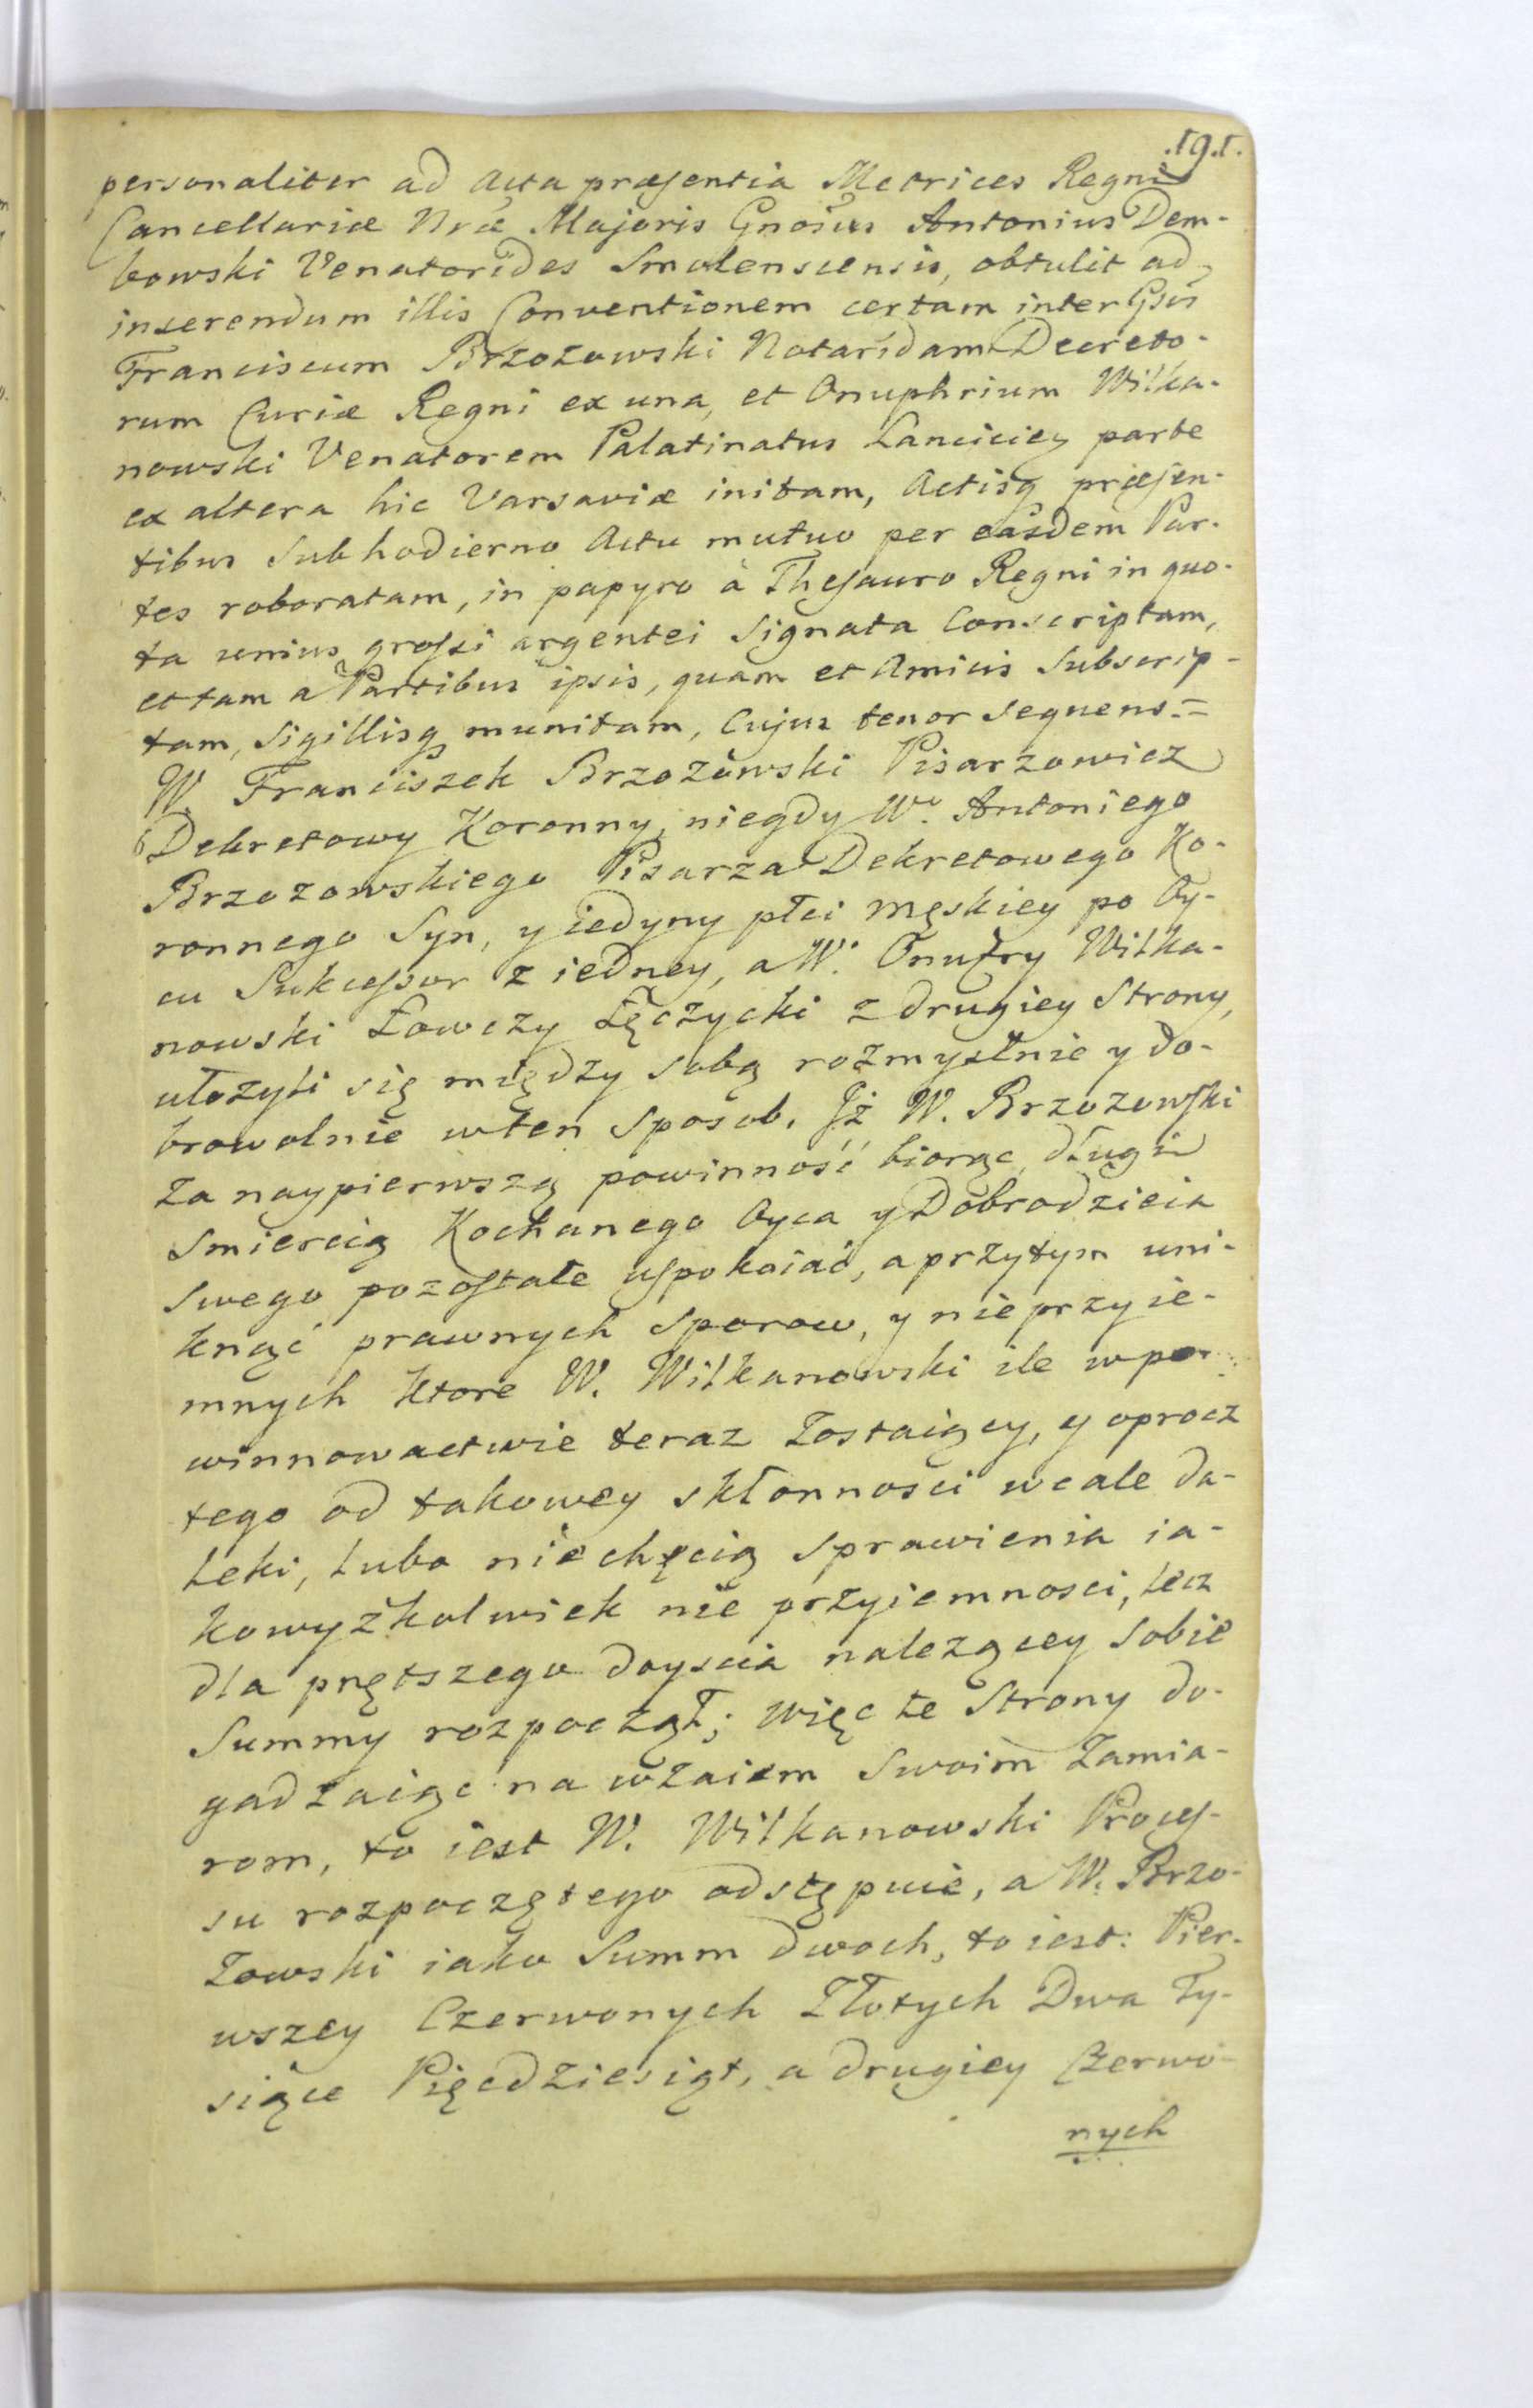 .191.
personaliter ad Acta præsentia Metrices Regni
Cancellariæ Nræ Majoris Gnosus Antonius Dem-
bowski Venatorides Smolenscensis, obtulit ad
inserendum illis Conventionem certam inter Gsos
Franciscum Brzozowski Notaridam Decreto-
rum Curiæ Regni ex una, et Onuphrium Wilka-
nowski Venatorem Palatinatus Lanciciem parte
ex altera hic Varsaviæ initam, Actisq præsen-
tibus sub hodierno Actu mutuo per easdem Par-
tes roboratam, in papyro à Thesauro Regni in quo-
ta unius grossi argentei Signata Conscriptam,
et tam a Partibus ipsis, quam et Amicis Subscrip-
tam, Sigillisq munitam, Cujus tenor sequens. =
W. Franciszek Brzozowski Pisarzowicz
Dekretowy Koronny, niegdy Wo. Antoniego
Brzozowskiego Pisarza Dekretowego Ko-
ronnego Syn, y iedyny płci męskiey po Oy-
cu Sukcessor z iedney, a W. Onufry Wilka-
nowski Łowczy Łęczycki z drugiey Strony,
ułożyli się między sobą rozmyslnie y do-
browolnie w ten sposob. Iż W. Brzozowski
za naypierwszą powinność biorąc długi
Smiercią Kochanego Oyca y Dobrodzieia
Swego pozostałe uspokaiać, a przytym uni-
knąć prawnych sporow, y nieprzyie-
mnych ktore W. Wilkanowski ile w po-
winnowactwie teraz zostaiący, y oprocz
tego od takowey skłonnosci wcale da-
leki, lubo niechęcią sprawienia ia-
kowyżkolwiek nie przyiemnosci, lecz
dla prętszego doyscia nalezącey sobie
Summy rozpoczął; więc te Strony do-
gadzaiąc na wzaiem Swoim Zamia-
rom, to iest W. Wilkanowski Proces-
su rozpoczętego odstępuie, a W. Brzo-
zowski iako Summ dwoch, to iest: Pier-
wszey Czerwonych Złotych Dwa Ty-
siące Pięcdziesiąt, a drugiey Czerwo-
nych